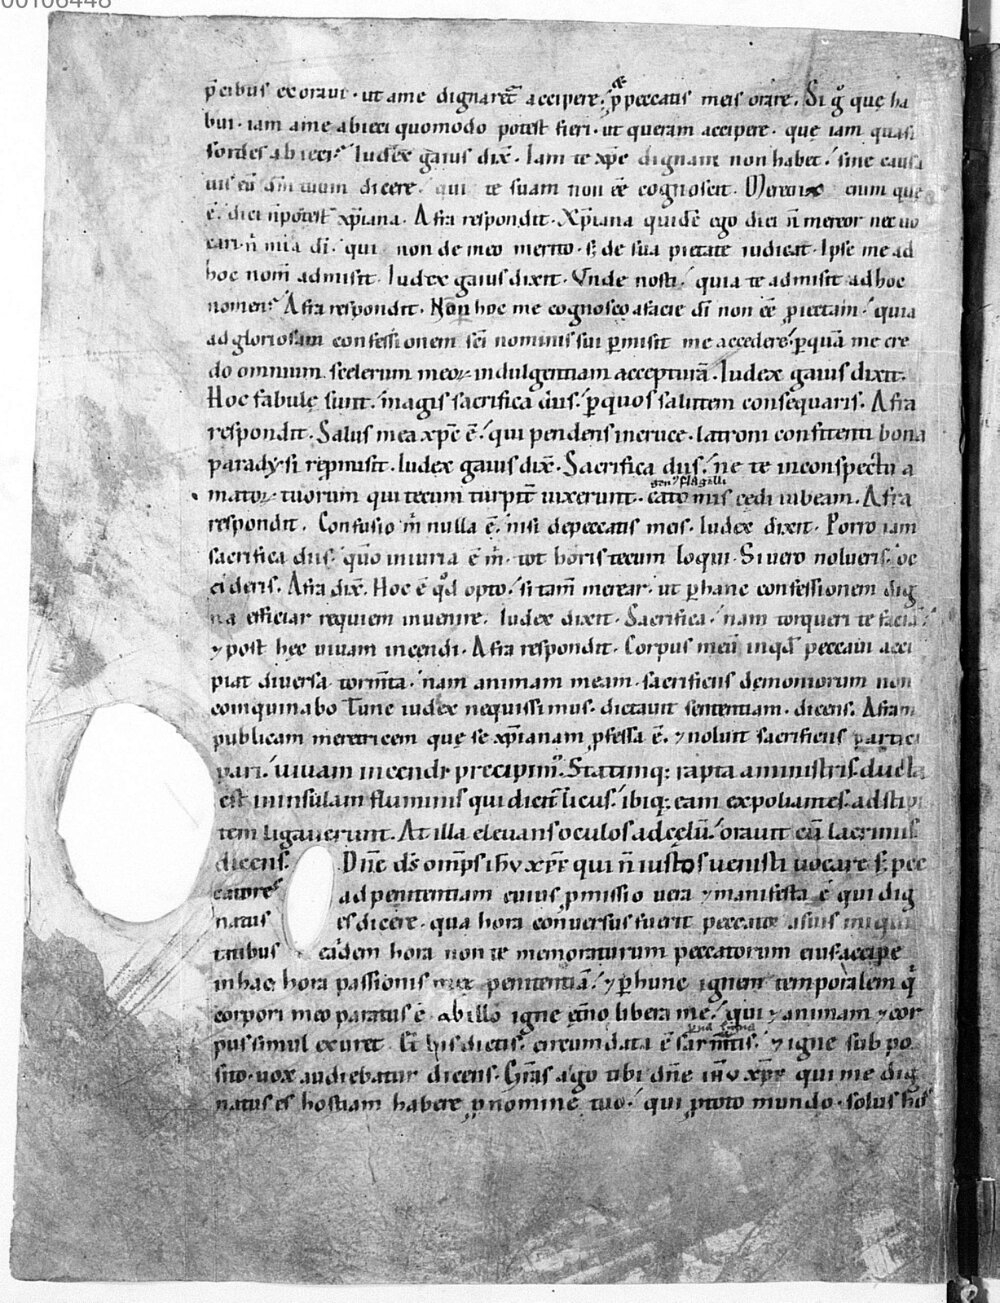 00106448
p̄cibus exoraui · ut a me dignaret᷒ accipere · ⁊ ꝓ peccatis meis orare. Si gͦ quę ha
bui · iam a me abieci quomodo potest fieri · ut queram accipere · quę iam quasi
sordes abieci? Iudex gaius dix̄ · Iam te xp̄c dignam non habet · sine causa
uis eū dm̄ tuum dicere · qui te suam non eē cognoscit. Meretrix enim quę
ē · dici n̄ potest xp̄iana. Afra respondit. Xp̄iana quidē ego dici n̄ mereor nec uo
cari · n̄ mīa dī · qui non de meo merito · s; de sua pietate iudicat · Ipse me ad
hoc nom̄ admisit. Iudex gaius dixit. Vnde nosti · quia te admisit ad hoc
nomen? Afra respondit. Non hoc me cognosco a facie dī non eē ꝓiectam · quia
ad gloriosam confessionem sc̄i nominis sui p̄misit me accedere · p̄ quā me cre
do omnium scelerum meoꝝ indulgentiam accepturā. Iudex gaius dixit.
Hoc fabulę sunt. magis sacrifica diis · p̄ quos salutem consequaris. Afra
respondit. Salus mea xp̄c ē · qui pendens in cruce · latroni confitenti bona
paradysi rep̄misit. Iudex gaius dix̄. Sacrifica diis · ne te in conspectu a
matoꝝ tuorum qui tecum turpit̄ uixerunt · catomis cędi iubeam. Afra
respondit. Confusio m̄ nulla ē · nisi de peccatis meis. Iudex dixit. Porro iam
sacrifica diis · quō iniuria ē m̄ · tot horis tecum loqui. Si uero nolueris · oc
cideris. Afra dix̄. Hoc ē qd̄ opto · si tam̄ merear · ut p̄ hanc confessionem dig
na efficiar requiem inuenire. Iudex dixit. Sacrifica · nam torqueri te faciā
⁊ post hęc uiuam incendi. Afra respondit. Corpus meū in qd̄ peccaui acci
piat diuersa torm̄ta · nam animam meam · sacrificiis demoniorum non
coinquinabo Tunc iudex nequissimus · dictauit sententiam · dicens. Afram
publicam meretricem quę se xp̄ianam ꝓfessa ē · ⁊ noluit sacrificiis partici
pari · uiuam incendi precipim᷒. Statimq; rapta a ministris · ducta
est in insulam fluminis qui dicit̄ licus · ibiq; eam expoliantes · ad stipi
tem ligauerunt. At illa eleuans oculos ad cęlū · orauit cū lacrimis
dicens. Dn̄e ds̄ omp̄s ih̄u xp̄e qui n̄ iustos uenisti uocare s; pec
catores ad penitentiam cuius ꝓmissio uera ⁊ manifesta ē qui dig
natus es dicere · qua hora conuersus fuerit peccator a suis iniqui
tatibus · eadem hora non te memoraturum peccatorum eius · accipe
in hac hora passionis meę penitentiā · ⁊ p̄ hunc ignem temporalem q̄
corpori meo paratus ē ab illo igne ęt̄no libera me · qui ⁊ animam ⁊ cor
pus simul exuret. Et his dictis · circumdata ē sarm̄tis · ⁊ igne subpo
sito · uox audiebatur dicens · Grās ago tibi dn̄e ih̄u xp̄e qui me dig
natus es hostiam habere ꝓ nomine tuo · qui ꝓ toto mundo · solus hos